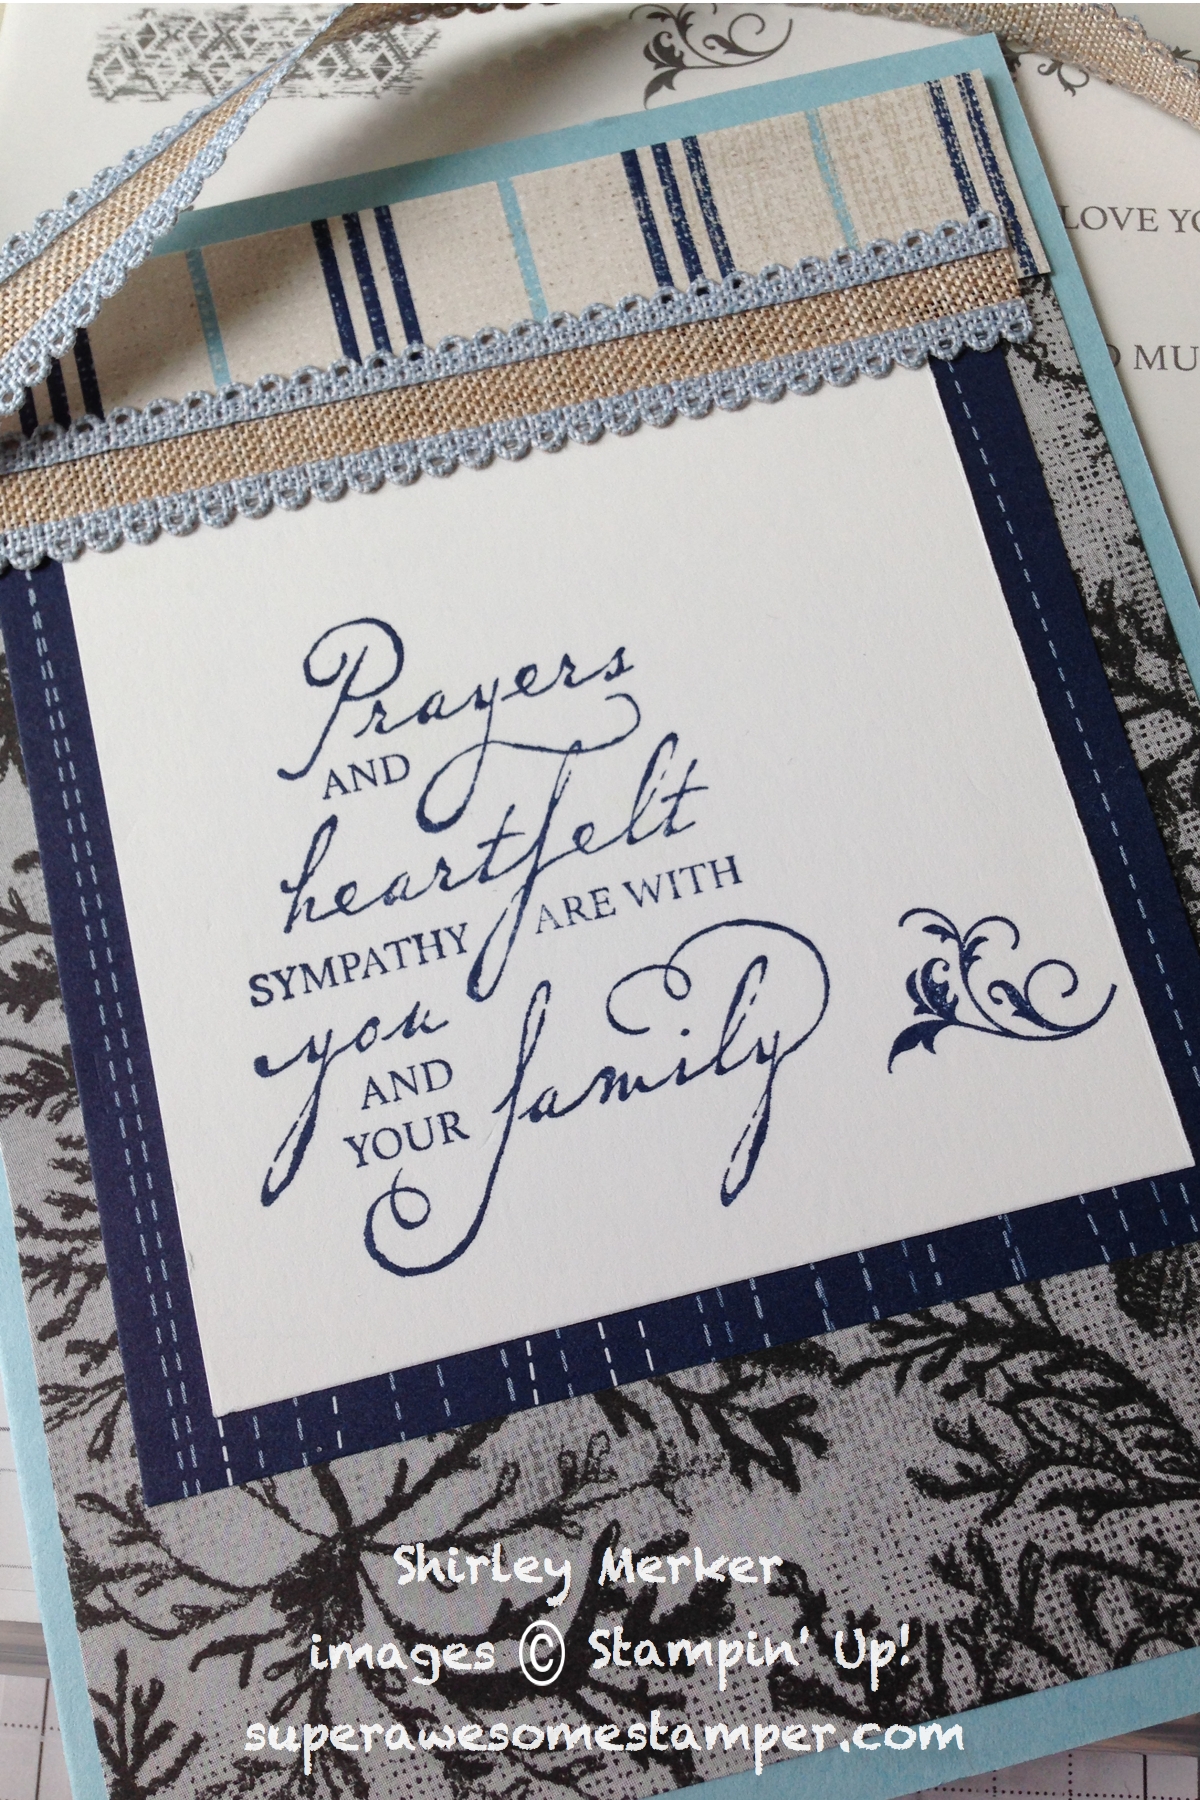 LOVE
MU
Prayers
AND
heartfelt
SYMPATHY ARE WITH
you
AND
YOUR family
Shirley Merker
images © Stampin' Up!
superawesomestamper.com